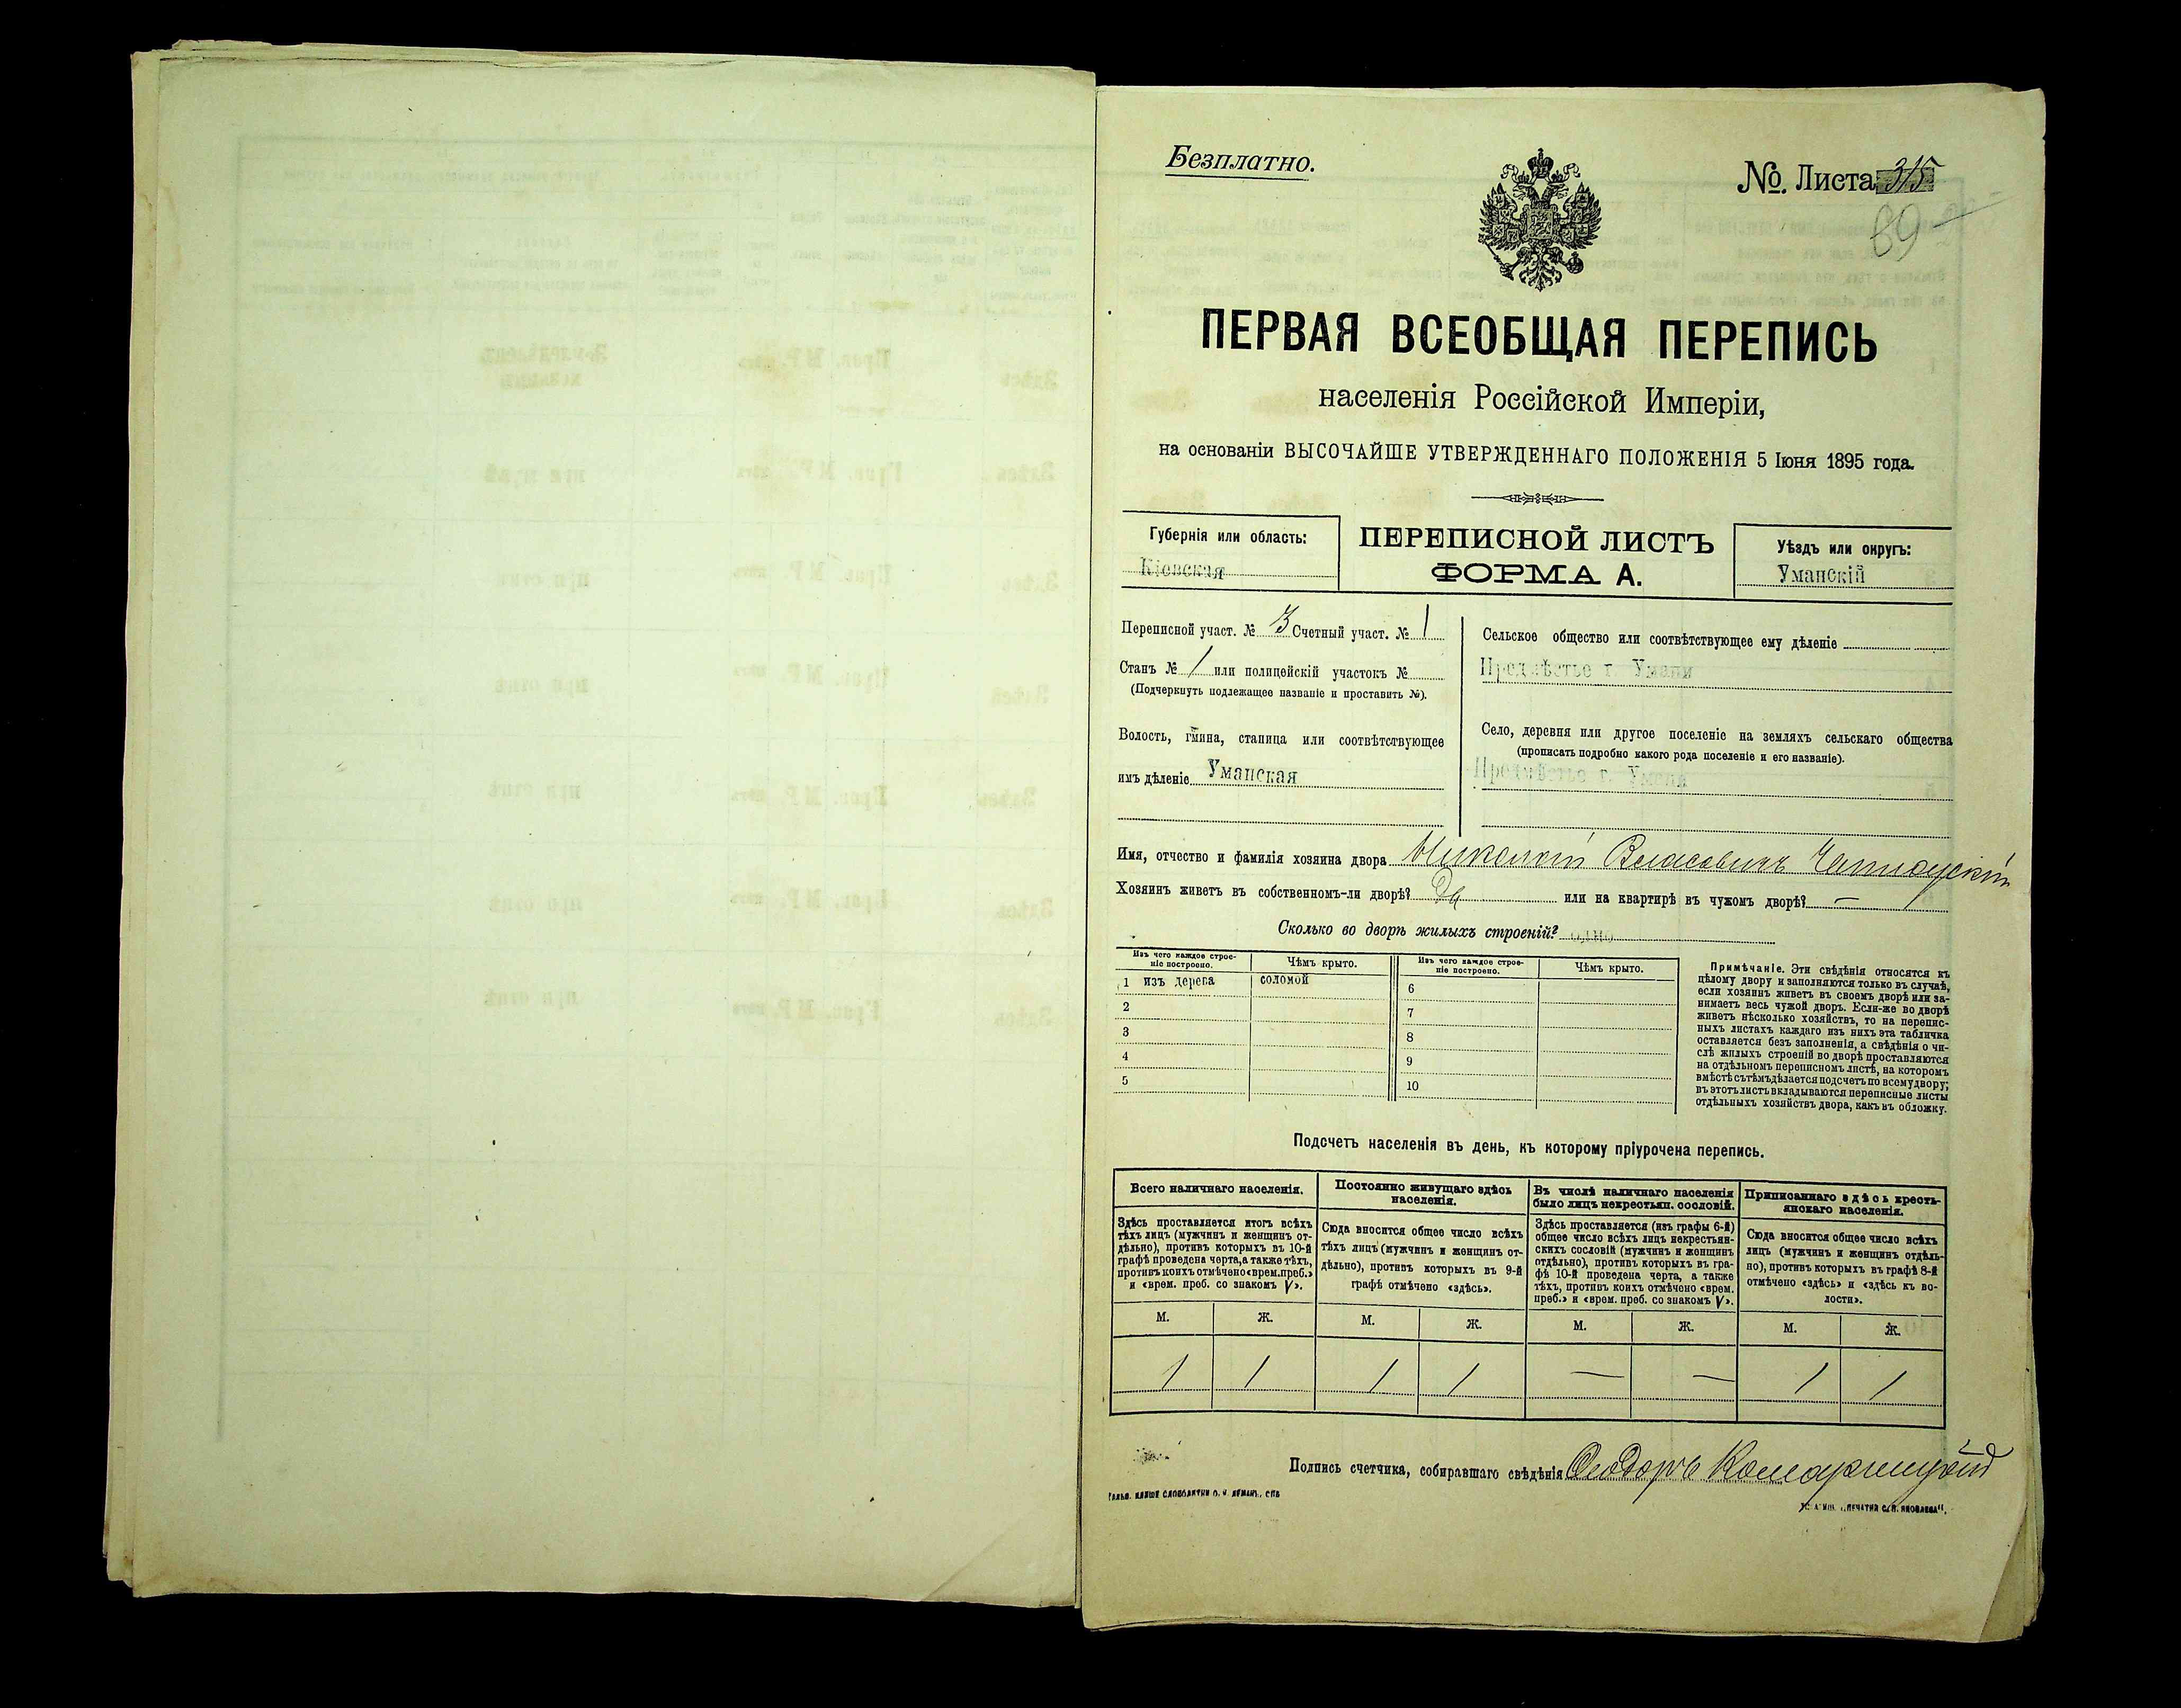 Безплатно.
№. Листа 315
69
ПЕРВАЯ ВСЕОБЩАЯ ПЕРЕПИСЬ
населенія Россійской Имперіи,
на основаніи ВЫСОЧАЙШЕ УТВЕРЖДЕННАГО ПОЛОЖЕНІЯ 5 Іюня 1895 года.
Губернія или область:
Кіевская
ПЕРЕПИСНОЙ ЛИСТЪ
ФОРМА А.
Уѣздъ или округъ:
Уманскій
Переписной участ. № 3 Счетный участ. № 1
Станъ № 1 или полицейскій участокъ №
(Подчеркнуть подлежащее названіе и проставить №).
Волость, гмина, станица или соотвѣтствующее
имъ дѣленіе Уманская
Сельское общество или соотвѣтствующее ему дѣленіе
Предмѣстье г. Умани
Село, деревня или другое поселеніе на земляхъ сельскаго общества
(прописать подробно какого рода поселеніе и его названіе).
Предмѣстье г. Умани
Имя, отчество и фамилія хозяина двора Николай Власовичъ
Хозяинъ живетъ въ собственномъ-ли дворѣ? Да или на квартирѣ въ чужомъ дворѣ? —
Сколько во дворѣ жилыхъ строеній? одно
Изъ чего каждое строе-
ніе построено.
Чѣмъ крыто.
Изъ чего каждое строе-
ніе построено.
Чѣмъ крыто.
1 изъ дерева соломой
2
3
4
5
6
7
8
9
10
Примѣчаніе. Эти свѣдѣнія относятся къ
цѣлому двору и заполняются только въ случаѣ,
если хозяинъ живетъ въ своемъ дворѣ или за-
нимаетъ весь чужой дворъ. Если-же во дворѣ
живетъ нѣсколько хозяйствъ, то на перепис-
ныхъ листахъ каждаго изъ нихъ эта табличка
оставляется безъ заполненія, а свѣдѣнія о чи-
слѣ жилыхъ строеній во дворѣ проставляются
на отдѣльномъ переписномъ листѣ, на которомъ
вмѣстѣ съ тѣмъ дѣлается подсчетъ по всему двору;
въ этотъ листъ вкладываются переписные листы
отдѣльныхъ хозяйствъ двора, какъ въ обложку.
Подсчетъ населенія въ день, къ которому пріурочена перепись.
Всего наличнаго населенія.
Здѣсь проставляется итогъ всѣхъ
тѣхъ лицъ (мужчинъ и женщинъ от-
дѣльно), противъ которыхъ въ 10-й
графѣ проведена черта, а также тѣхъ,
противъ коихъ отмѣчено «врем. преб.»
и «врем. преб. со знакомъ V».
Постоянно живущаго здѣсь
населенія.
Сюда вносится общее число всѣхъ
тѣхъ лицъ (мужчинъ и женщинъ от-
дѣльно), противъ которыхъ въ 9-й
графѣ отмѣчено «здѣсь».
Въ числѣ наличнаго населенія
было лицъ некрестьян. сословій.
Здѣсь проставляется (изъ графы 6-й)
общее число всѣхъ лицъ некрестьян-
скихъ сословій (мужчинъ и женщинъ
отдѣльно), противъ которыхъ въ гра-
фѣ 10-й проведена черта, а также
тѣхъ, противъ коихъ отмѣчено «врем.
преб.» и «врем. преб. со знакомъ V».
Приписаннаго здѣсь кресть-
янскаго населенія.
Сюда вносится общее число всѣхъ
лицъ (мужчинъ и женщинъ отдѣль-
но), противъ которыхъ въ графѣ 8-й
отмѣчено «здѣсь» и «здѣсь къ во-
лости».
М. Ж. М. Ж. М. Ж. М. Ж.
1 1 1 1 — — 1 1
Подпись счетчика, собиравшаго свѣдѣнія Ѳеодоръ Комарницкій